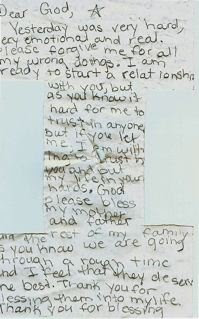 Dear God,
Yesterday was very hard,
very emotional and real.
Please forgive me for all
my wrong doings. I am
ready to start a relationsh
with you, but
as you know it
hard for me to
trust in anyone
but if you let
me. I am will
that I trust in
you and put
my life in your
hands. God
please bless
my mother
and father
and the rest of my family
as you know we are going
through a rough time
and I feel that they deserv
the best. Thank you for
blessing them into my life.
Thank you for blessing